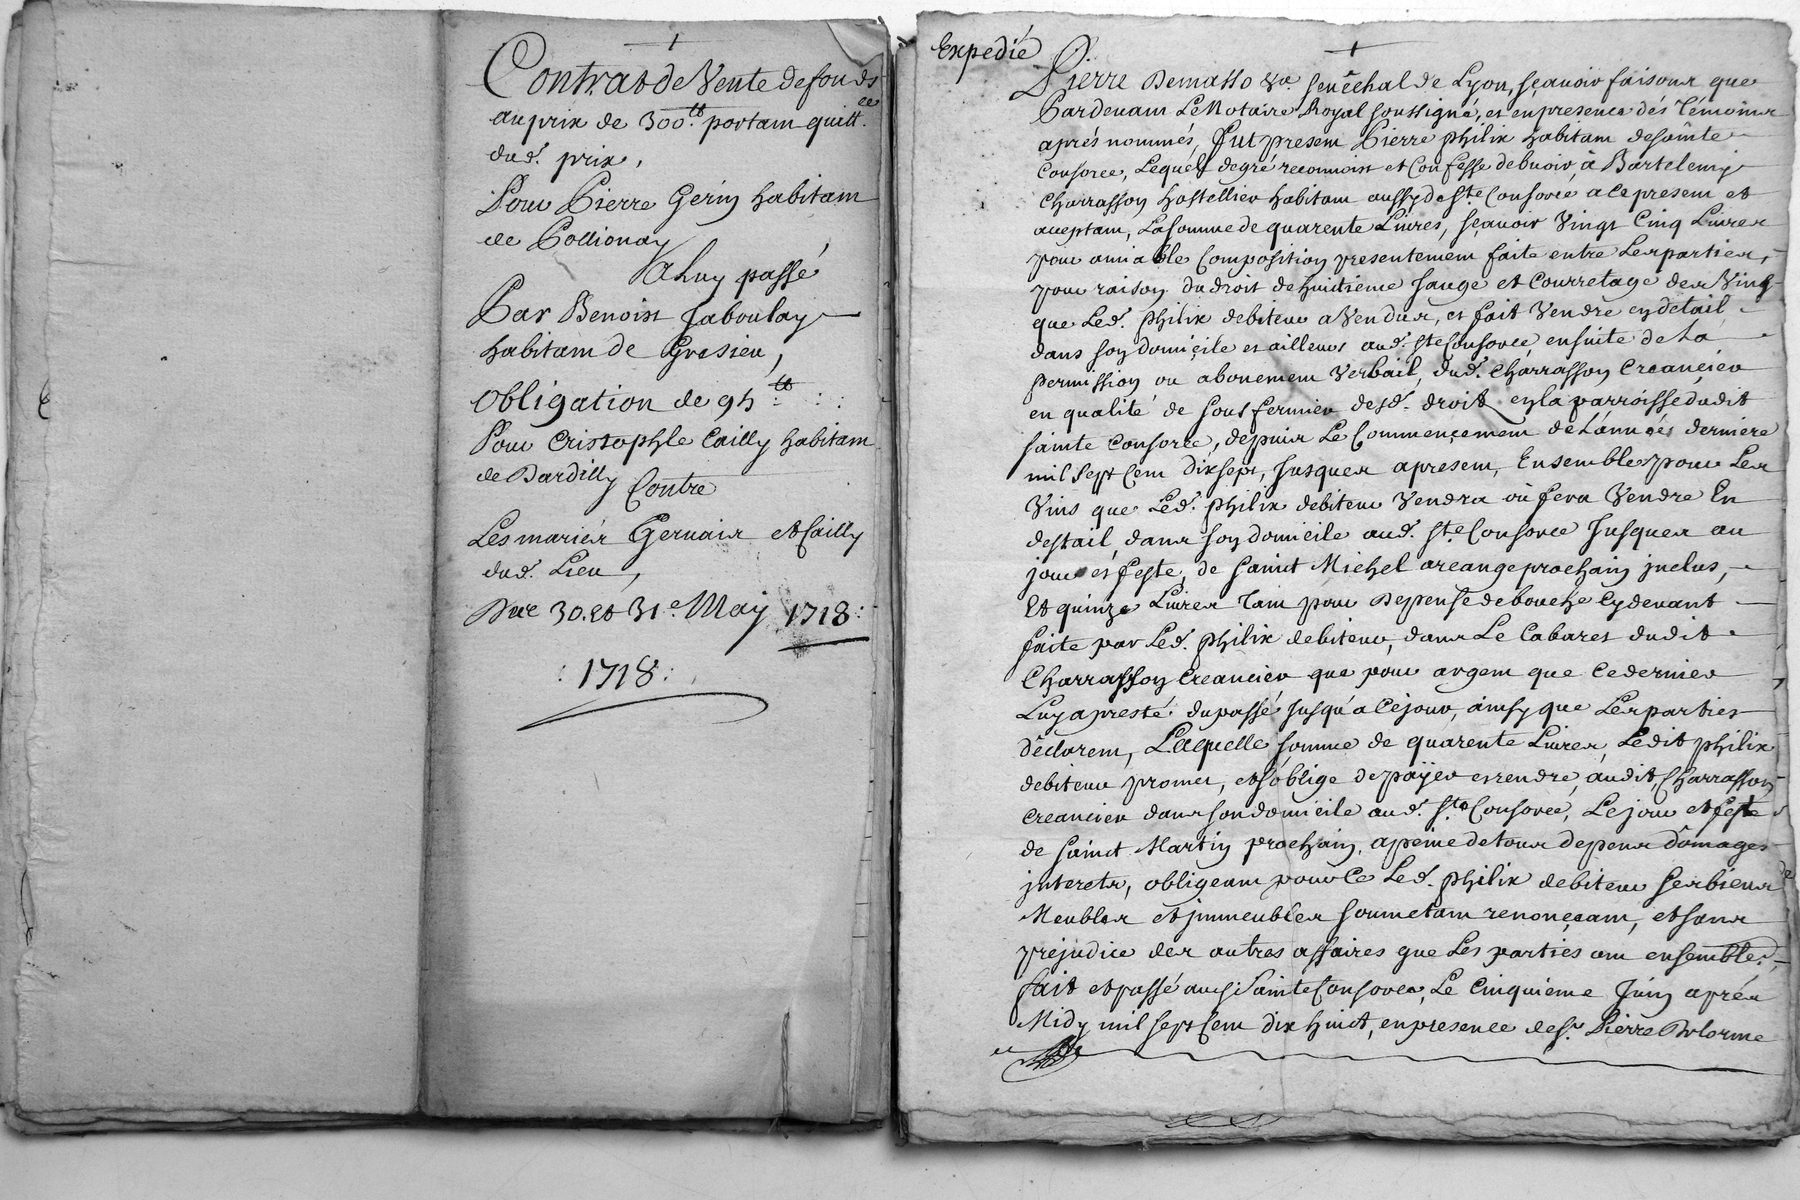 Contrat de Vente de fonds
au prix de 300.tt portam quitt.ce
dud. prix,
Pour Pierre Gerin habitam
de Pollionay
A luy passé
Par Benoist Jaboulay
habitam de Gresieu,
Obligation de 95.tt
Pour Cristophle Cailly habitam
de Dardilly Contre
Les mariés Gervais et Cailly
dud. Lieu,
Du 30. et 31.e May 1718:
: 1718:
Expedié
Pierre Demasso sénéchal de Lyon, sçavoir faisons que
Pardevam Le Notaire Royal soussigné, et en presence dés Témoins
aprés nommés, fut presem Pierre philix habitam de sainte
Consorce, Lequel de gré reconnoist et Confesse debvoir, à Bartelemy
Charrasson hostellier habitam aussy de Ste Consorce a ce presem et
acceptam, La somme de quarente Livres, sçavoir Vingt Cinq Livres
pour amiable Composition presentemem faite entre Les parties,
pour raison du droit de huitieme Jauge et Courretage des Vins
que Led. philix debiteur a Vendus, et fait Vendre en detail
dans son domicile et ailleurs aud. Ste Consorce ensuite de La
permission ou abonemem Verbail, dud. Charrasson Creancier
en qualité de sous fermier desd. droits en la parroisse dudit
sainte Consorce, depuis Le Commençemem de L'année derniere
mil sept Cem dix sept, Jusques a presem, Ensembles pour Les
Vins que Led. philix debiteur Vendra où fera Vendre En
destail, dans son domicile aud. Ste Consorce Jusques au
jour et feste, de Sainct Michel arcange prochain jnclus,
Et quinze Livres Tam pour Depense de bouche Cy devant
faite par Led. philix debiteur, dans Le Cabaret dudit
Charrasson Creancier que pour argem que Ce dernier
Luy a presté du passé Jusqu'a Ce jour, ainsy que Les parties
déclarem, Laquelle somme de quarente Livres, Ledit philix
debiteur promet, et s'oblige de payer et rendre, audit, Charrasson
Creancier dans son domicile aud. Ste Consorce, Le jour et feste
de Sainct Martin prochain, a peine de tous depens dômages
jnterets, obligeam pour Ce Led. philix debiteur ses biens
Meubles et jmmeubles soumetam renonçeam, et sans
prejudice des autres affaires que Les parties om ensembles,
fait et passé aud. Sainte Consorce, Le Cinquieme Juin aprés
Midy mil sept Cem dix huict, en presence de Sr. Pierre Delorme